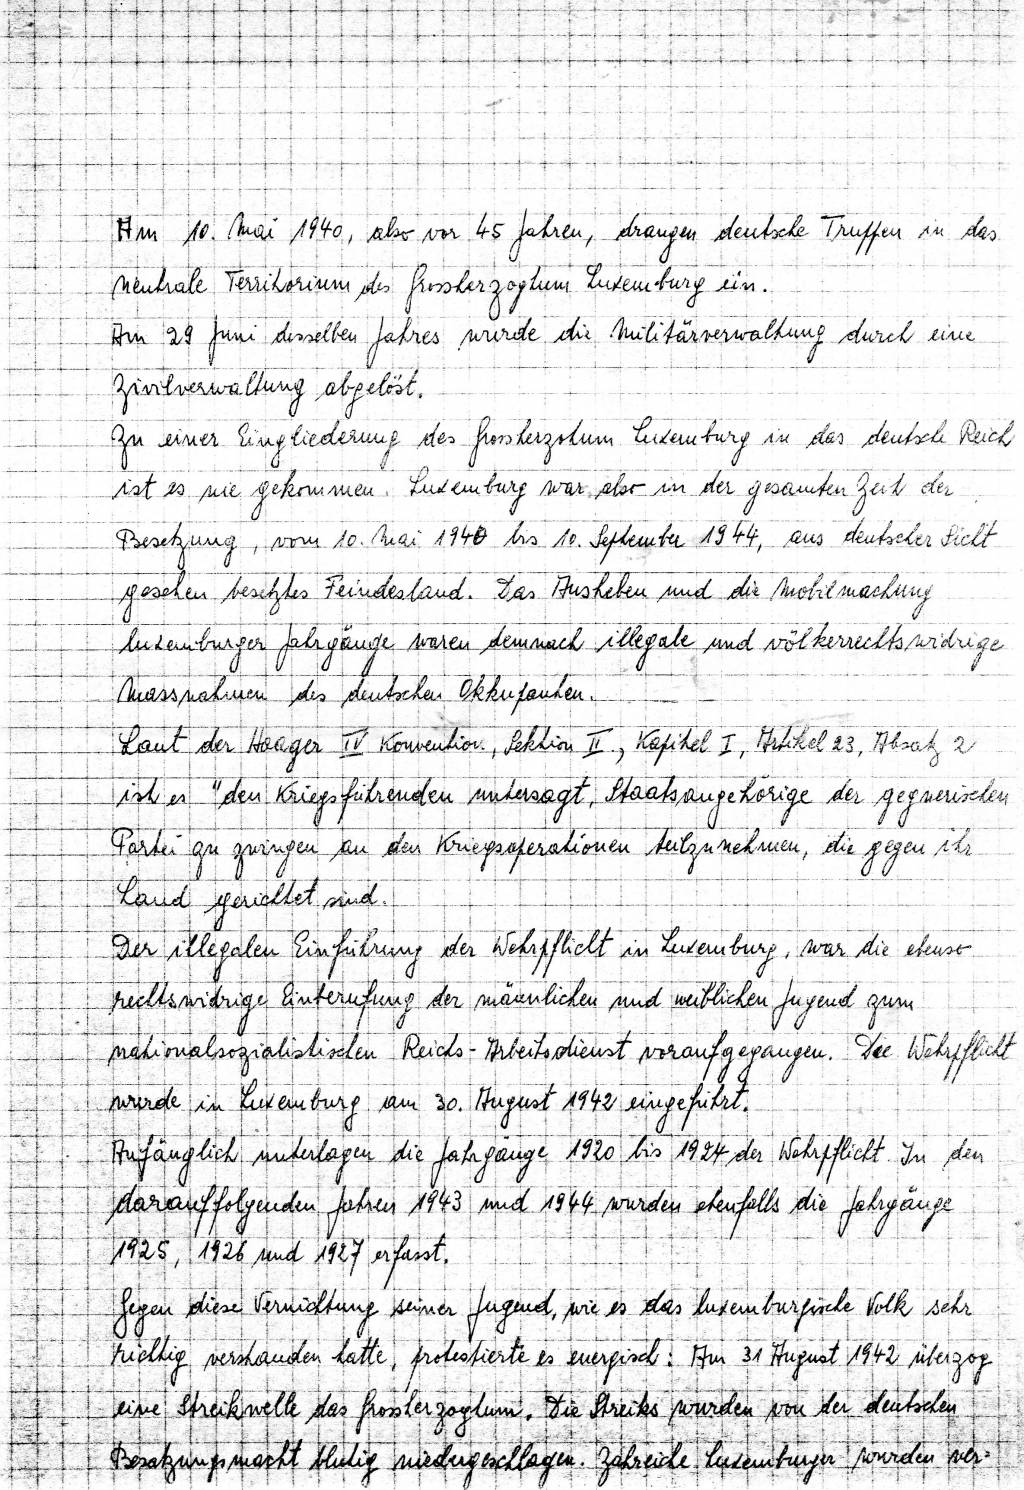 Am 10. Mai 1940, also vor 45 Jahren, drangen deutsche Truppen in das
neutrale Territorium des Grossherzogtum Luxemburg ein.
Am 29 Juni desselben Jahres wurde die Militärverwaltung durch eine
Zivilverwaltung abgelöst.
Zu einer Eingliederung des Grossherzotum Luxemburg in das deutsche Reich
ist es nie gekommen. Luxemburg war also in der gesamten Zeit der
Besetzung, vom 10. Mai 1940 bis 10. September 1944, aus deutscher Sicht
gesehen besetztes Feindesland. Das Ausheben und die Mobilmachung
luxemburger Jahrgänge waren demnach illegale und völkerrechtswidrige
Massnahmen des deutschen Okkupanten.
Laut der Haager IV Konvention, Sektion II., Kapitel I, Artikel 23, Absatz 2
ist es "den Kriegsführenden untersagt, Staatsangehörige der gegnerischen
Partei zu zwingen an den Kriegsoperationen teilzunehmen, die gegen ihr
Land gerichtet sind.
Der illegalen Einführung der Wehrpflicht in Luxemburg, war die ebenso
rechtswidrige Einberufung der männlichen und weiblichen Jugend zum
nationalsozialistischen Reichs-Arbeitsdienst voraufgegangen. Die Wehrpflicht
wurde in Luxemburg am 30. August 1942 eingeführt.
Anfänglich unterlagen die Jahrgänge 1920 bis 1924 der Wehrpflicht. In den
darauffolgenden Jahren 1943 und 1944 wurden ebenfalls die Jahrgänge
1925, 1926 und 1927 erfasst.
Gegen diese Vernichtung seiner Jugend, wie es das luxemburgische Volk sehr
richtig verstanden hatte, protestierte es energisch: Am 31 August 1942 überzog
eine Streikwelle das Grossherzogtum. Die Streiks wurden von der deutschen
Besatzungsmacht blutig niedergeschlagen. Zahreiche Luxemburger wurden ver-